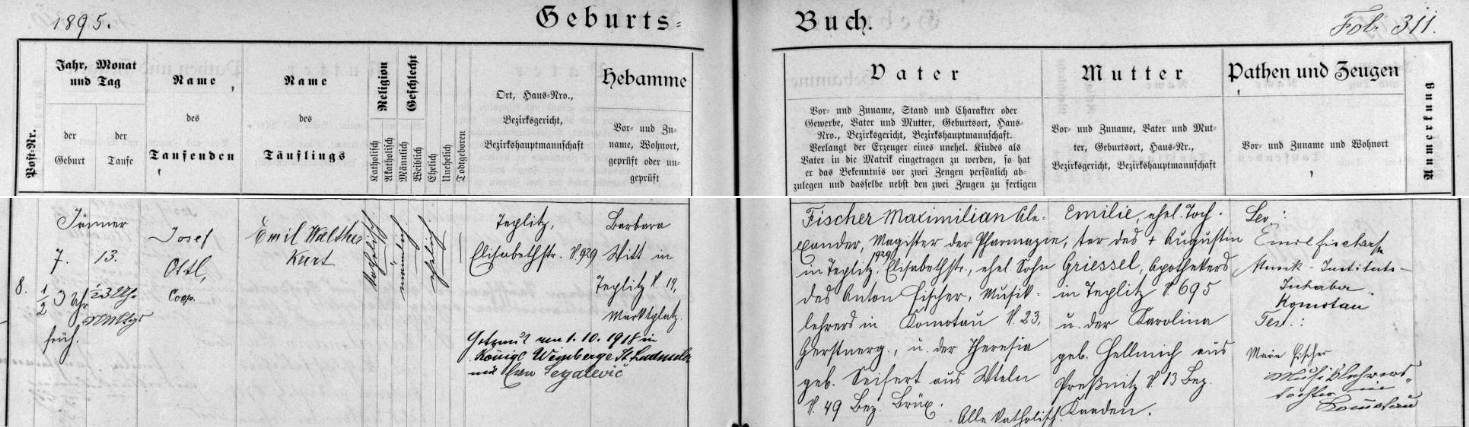 1895.
Geburts-
Buch.
Fol. 311.
Post-Nr.
Jahr, Monat
und Tag
der
Geburt
der
Taufe
Name
des
Taufenden
Name
des
Täuflings
Religion
Katholisch
Akatholisch
Geschlecht
Männlich
Weiblich
Ehelich
Unehelich
Todtgeboren
Ort, Haus-Nro.,
Bezirksgericht,
Bezirkshauptmannschaft
Hebamme
Vor- und Zu-
name, Wohnort,
geprüft oder un-
geprüft
Vater
Vor- und Zuname, Stand und Charakter oder
Gewerbe, Vater und Mutter, Geburtsort, Haus-
Nro., Bezirksgericht, Bezirkshauptmannschaft.
Verlangt der Erzeuger eines unehel. Kindes als
Vater in die Matrik eingetragen zu werden, so hat
er das Bekenntnis vor zwei Zeugen persönlich ab-
zulegen und dasselbe nebst den zwei Zeugen zu fertigen
Mutter
Vor- und Zuname, Vater und Mut-
ter, Geburtsort, Haus-Nr.,
Bezirksgericht, Bezirkshauptmannschaft
Pathen und Zeugen
Vor- und Zuname und Wohnort
Anmerkung
8.
Jänner
7. 13.
1/2 3 Uhr
früh.
1/2 3 Uhr
Josef
Ottl,
Coop.
Emil Walther
Kurt
katholisch
männlich
ehelich
Teplitz,
Elisabethstr. N. 929
Getraut am 1.10.1918 in
Königl. Weinberge St. Ludmila
mit
Barbara
Witt in
Teplitz N. 14,
Marktplatz.
Fischer Maximilian Ale-
xander, Magister der Pharmazie,
in Teplitz, Elisabethstr., 929 ehel. Sohn
des Anton Fischer, Musik-
lehrers in Komotau N. 23,
u. der Theresia
geb. Seifert aus Wteln
N. 49 Bez. Brüx.
Alle katholisch.
Emilie, ehel. Toch-
ter des + Augustin
Griessel, Apothekers
in Teplitz N. 695
u. der Karolina
geb. Hellmich aus
Preßnitz N. 13 Bez.
Kaaden.
Lev.:
Emil Fischer
Musik-Instituts-
Inhaber
Komotau
Test.:
Marie Fischer
Musiklehrers-
tochter in
Komotau